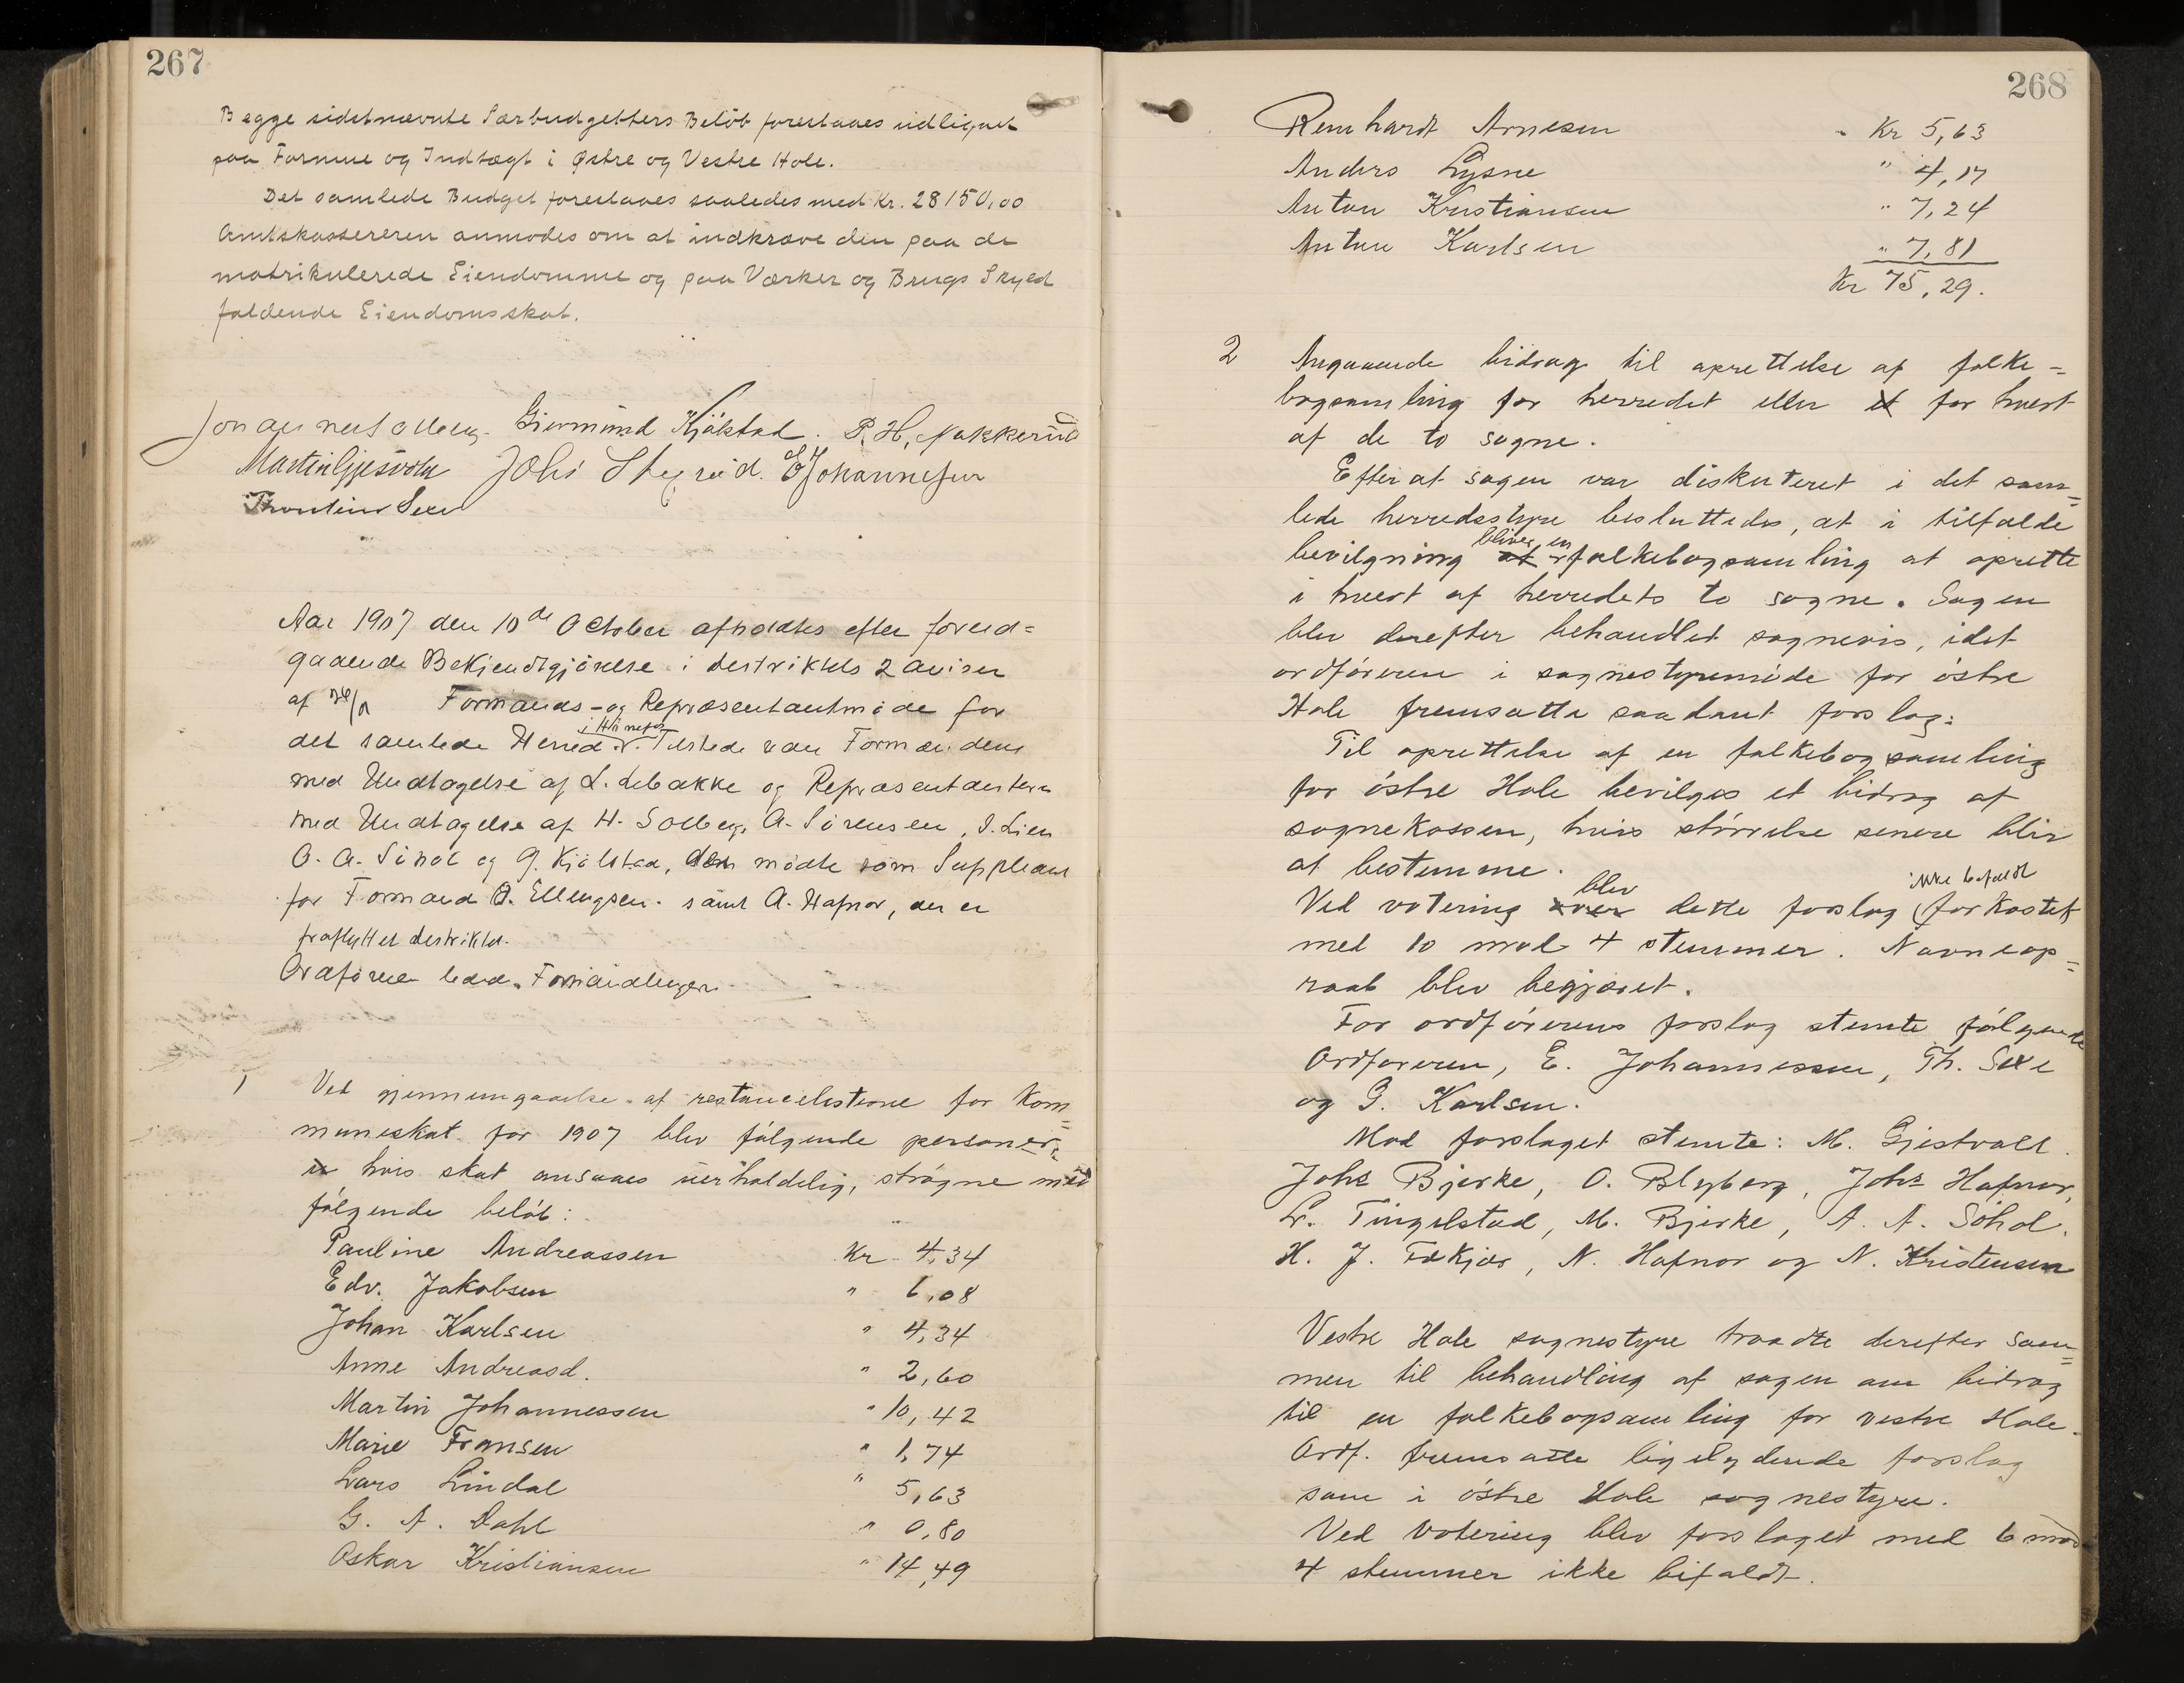 267
Begge sidstnævnte Særbudgetters Beløb foreslaaes udlignet
paa Formue og Indtægt i Østre og Vestre Hole.
Det samlede Budget foreslaaes saaledes med Kr. 28150,00
Amtskassereren anmodes om at indkræve den paa de
matrikulerede Eiendomme og paa Værker og Brugs Skyld
faldende Eiendomsskat.
Gudmund Kjölstad. P. H. Nakkerud
Martin Gjesvold Johs Stegrud. E Johannesen
Thorstein Sexe
Aar 1907 den 10de October afholdtes efter forud=
gaaende Bekjendtgjörelse i destriktets 2 aviser
af Formands- og Repræsentantmöde for
det samlede Herred i Hönefos. Tilstede var Formændene
med Undtagelse af L. Lebakke og Repræsentanterne
med Undtagelse af H. Solberg, A. Sörensen, I. Lien
O. A. Söhol og G. Kjölstad, der mödte som Suppleant
for Formand O. Ellengsen. samt A. Hafnor, der er
fraflyttet destriktet.
Ordföreren leded Forhandlingen
1 Ved gjennemgaaelse af restancelisterne for kom=
muneskat for 1907 blev følgende personer,
hvis skat ansaaes uerholdelig, strögne med
fölgende belöb:
Pauline Andreassen Kr 4,34
Edv. Jakobsen " 6,08
Johan Karlsen " 4,34
Anne Andreasd. " 2,60
Martin Johannessen " 10,42
Marie Fransen " 1,74
Lars Lindal " 5,63
G. A. Dahl " 0,80
Oskar Kristiansen " 14,49
268
Reinhardt Arnesen " Kr 5,63
Anders Lysne " 4,17
Anton Kristiansen " 7,24
Anton Karlsen " 7,81
Kr 75,29.
2 Angaaende bidrag til oprettelse af folke-
bogsamling for herredet eller et for hvert
af de to sogne.
Efter at sagen var diskuteret i det sam=
lede herredsstyre besluttedes, at i tilfælde
bevilgning at bliver en folkebogsamling at oprette
i hvert af herredets to sogne. Sagen
blev derefter behandlet sognevis, idet
ordföreren i sognestyremöde for östre
Hole fremsatte saadant forslag:
Til oprettelse af en folkebogsamling
for östre Hole bevilges et bidrag af
sognekassen, hvis störrelse senere blir
at bestemme.
Ved votering over blev dette forslag (forkastet ikke bifaldt
med 10 mod 4 stemmer. Navneop=
raab blev begjæret.
For ordförerens forslag stemte fölgende
Ordföreren, E. Johannessen, Th. Sexe
og G. Karlsen.
Mod forslaget stemte: M. Gjestvold.
Johs Bjerke, O. Blyberg, Johs Hafnor,
Lr. Tingelstad, M. Bjerke, A. A. Söhol.
H. J. Fækjær, N. Hafnor og N. Kristensen
Vestre Hole sognestyre traadte derefter sam=
men til behandling af sagen om bidrag
til en folkebogsamling for vestre Hole.
Ordf. fremsatte ligelydende forslag
som i östre Hole sognestyre.
Ved votering blev forslaget med 6 mod
4 stemmer ikke bifaldt.